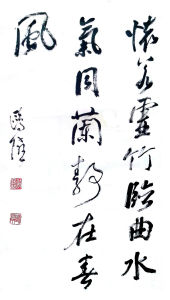 懷若虛竹臨曲水
氣同蘭靜在春
風